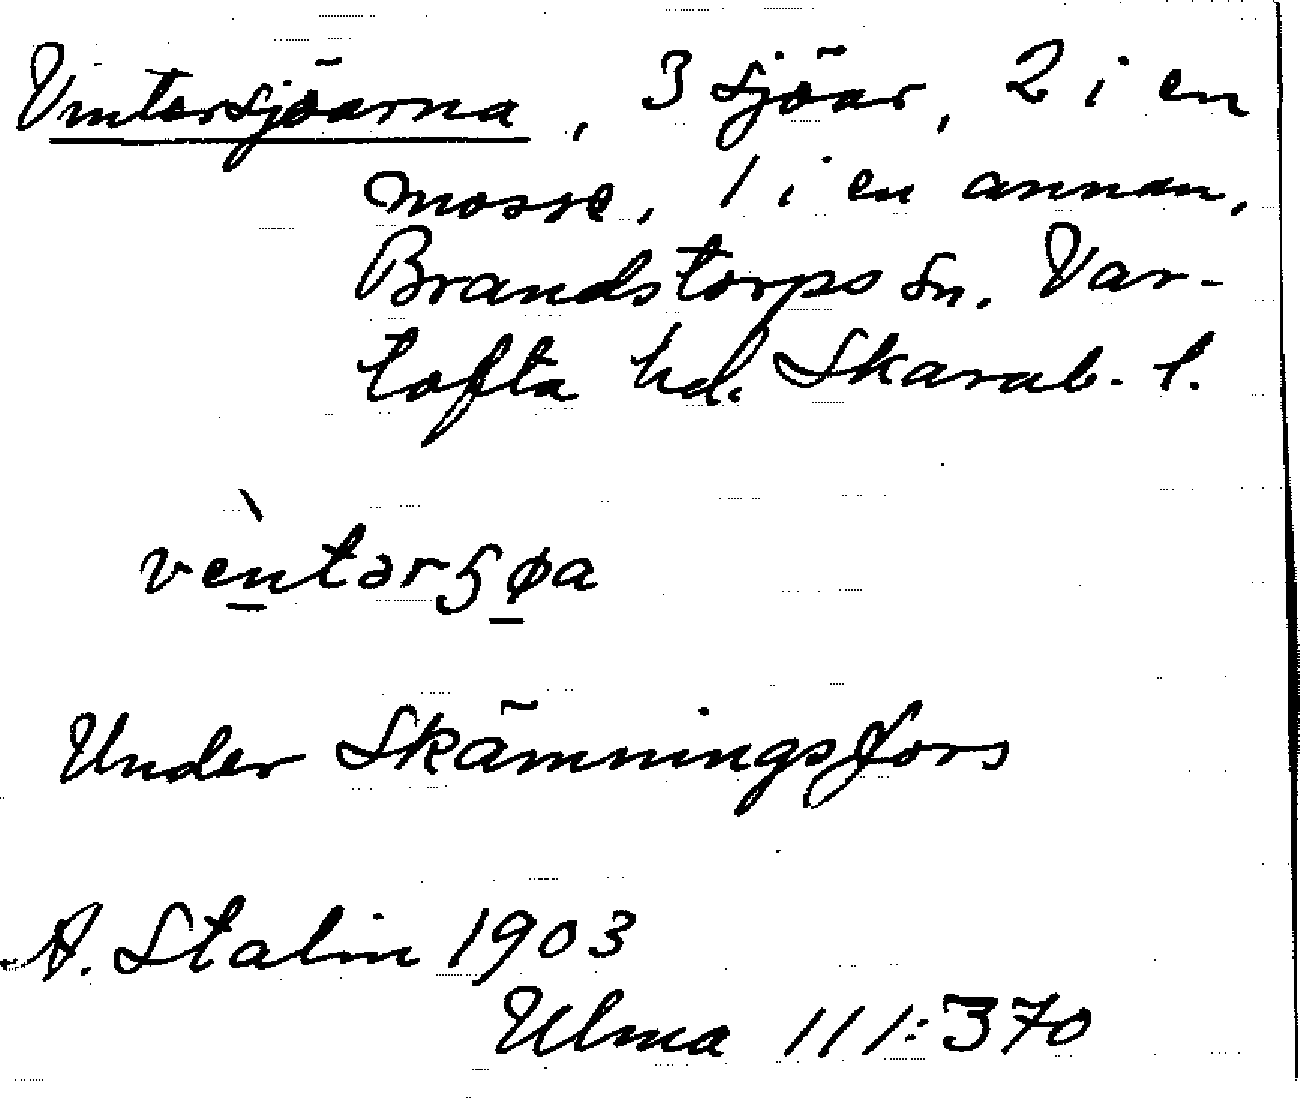 Vintersjöarna, 3 sjöar, 2 i en
mosse, 1 i en annan,
Brandstorps sn. Var-
tofta hd. Skarab. l.
vèntərʂøa
Under Skämningsfors
A. Stalin 1903
Ulma 111:370